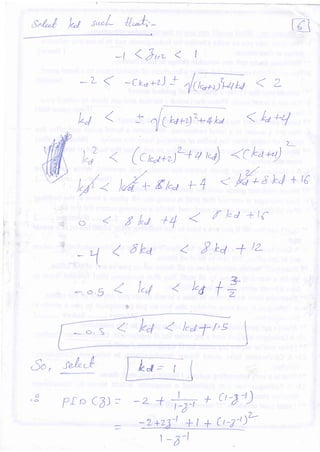 6
Select kd such that:-
-1 < z1,2 < 1
-2 < -(kd+2) ± √(kd+2)²+4kd < 2
kd < ± √(kd+2)²+4kd < kd+4
kd² < ((kd+2)²+4kd) < (kd+4)²
kd² < kd² + 8kd + 4 < kd²+8kd+16
0 < 8kd +4 < 8kd+16
-4 < 8kd < 8kd + 12
-0.5 < kd < kd + 3/2
-0.5 < kd < kd+1.5
So, select kd = 1
∴ PID(z) = -2 + 1/(1-z⁻¹) + (1-z⁻¹)
= (-2+2z⁻¹ +1 + (1-z⁻¹)²)/(1-z⁻¹)